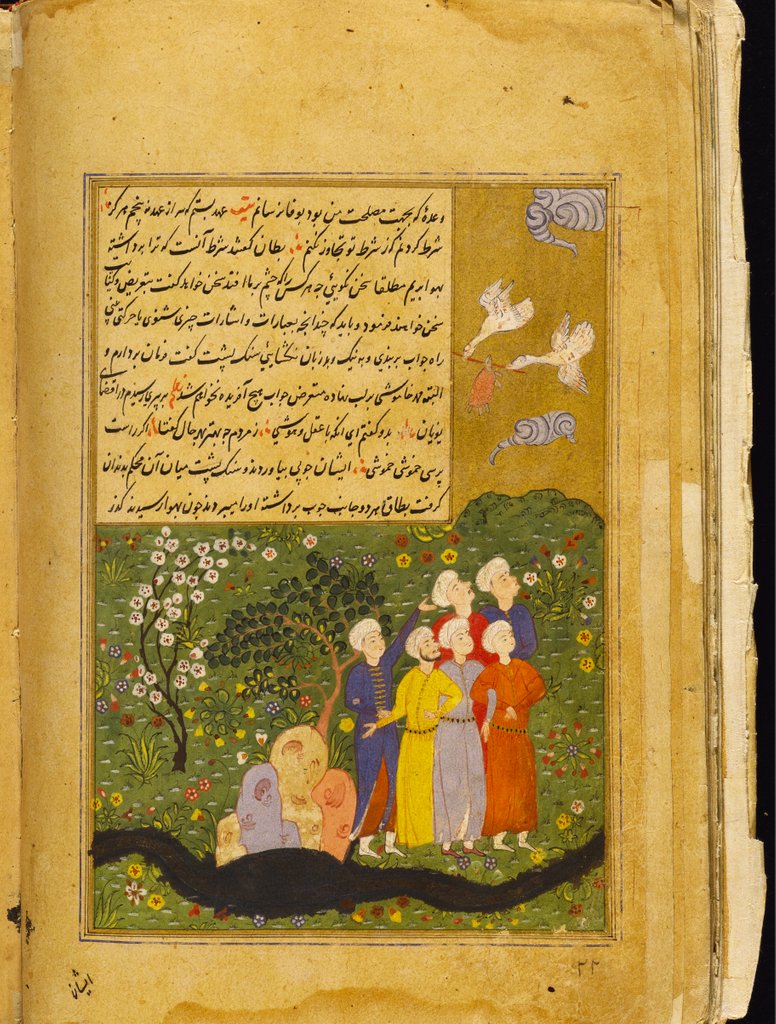 وعدهٔ که بجهت مصلحت من بود بوفا نرسانم بیت عهد بستم که سر از عهده نپیچم هرگز
شرط کردم که از شرط تو تجاوز نکنم بطان گفتند شرط آنست که ترا برداشته
بهوا بریم مطلقا سخن نگوئی چه هر کس را که چشم بر ما افتد سخن خواهد گفت بتعریض و کنایت
سخن خواهند فرمود و باید که چندانچه بعبارات و اشارات چیزی شنوی یا حرکتی بینی
راه جواب بربندی و به نیک و بد زبان نگشایی سنک پشت گفت فرمان بردارم و
البته مهر خاموشی بر لب نهاده متعرض جواب هیچ آفریده نخواهم شد نظم به پیری رسیدم در اقصای
یونان بدو گفتم ای آنکه با عقل و هوشی ز مردم چه بهتر بهر حال گفتا اگر راست
پرسی خموشی خموشی ایشان چوبی بیاوردند و سنک پشت میان آن محکم بدندان
گرفت بطان هر دو جانب چوب برداشته اورا میبردند چون بهوا رسیدند گذر
ایشان
۲۲